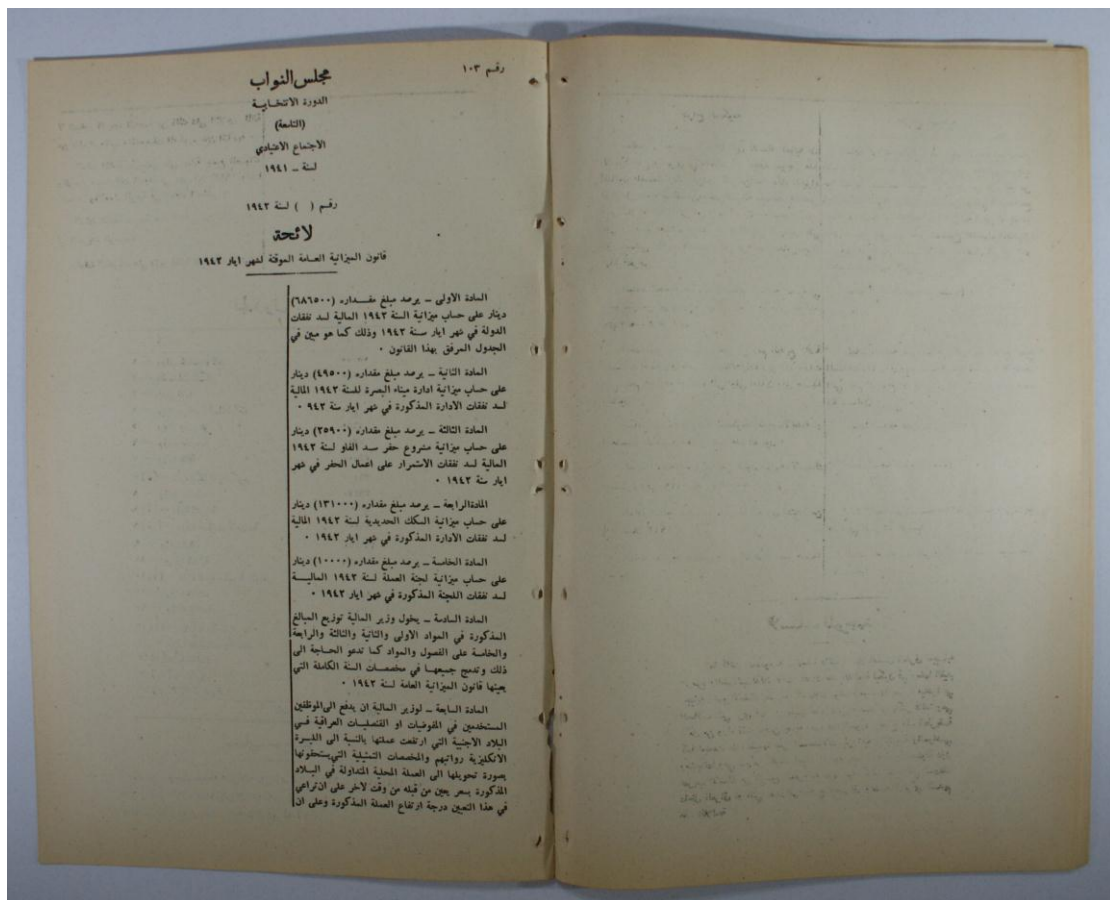 رقم ١٠٣
مجلس النواب
الدورة الانتخابية
(التاسعة)
الاجتماع الاعتيادي
لسنة ــ ١٩٤١
رقم ( ) لسنة ١٩٤٢
لائحة
قانون الميزانية العامة الموقتة لشهر ايار ١٩٤٢
المادة الاولى ــ يرصد مبلغ مقداره (٦٨٦٥٠٠)
دينار على حساب ميزانية السنة ١٩٤٢ المالية لسد نفقات
الدولة في شهر ايار سنة ١٩٤٢ وذلك كما هو مبين في
الجدول المرفق بهذا القانون ٠
المادة الثانية ــ يرصد مبلغ مقداره (٤٩٥٠٠) دينار
على حساب ميزانية ادارة ميناء البصرة للسنة ١٩٤٢ المالية
لسد نفقات الادارة المذكورة في شهر ايار سنة ٩٤٢ ٠
المادة الثالثة ــ يرصد مبلغ مقداره (٢٥٩٠٠) دينار
على حساب ميزانية مشروع حفر سد الفاو لسنة ١٩٤٢
المالية لسد نفقات الاستمرار على اعمال الحفر في شهر
ايار سنة ١٩٤٢ ٠
المادةالرابعة ــ يرصد مبلغ مقداره (١٣١٠٠٠) دينار
على حساب ميزانية السكك الحديدية لسنة ١٩٤٢ المالية
لسد نفقات الادارة المذكورة في شهر ايار ١٩٤٢ ٠
المادة الخامسة ــ يرصد مبلغ مقداره (١٠٠٠٠) دينار
على حساب ميزانية لجنة العملة لسنة ١٩٤٢ الماليــة
لسد نفقات اللجنة المذكورة في شهر ايار ١٩٤٢ ٠
المادة السادسة ــ يخول وزير المالية توزيع المبالغ
المذكورة في المواد الاولى والثانية والثالثة والرابعة
والخامسة على الفصول والمواد كما تدعو الحـاجة الى
ذلك وتدمج جميعهـا في مخصصـات السنة الكاملة التي
يعينها قانون الميزانية العامة لسنة ١٩٤٢ ٠
المادة السابعة ــ لوزير المالية ان يدفع الىالموظفين
المستخدمين في المفوضيات او القنصليـات العراقية فـي
البلاد الاجنبية التي ارتفعت عملتها بالنسبة الى الليـرة
الانكليزية رواتبهم والمخصصات التمثيلية التييستحقونها
بصورة تحويلها الى العملة المحلية المتداولة في البـلاد
المذكورة بسعر يعين من قبله من وقت لاخر على انتراعي
في هذا التعيين درجة ارتفاع العملة المذكورة وعلى ان